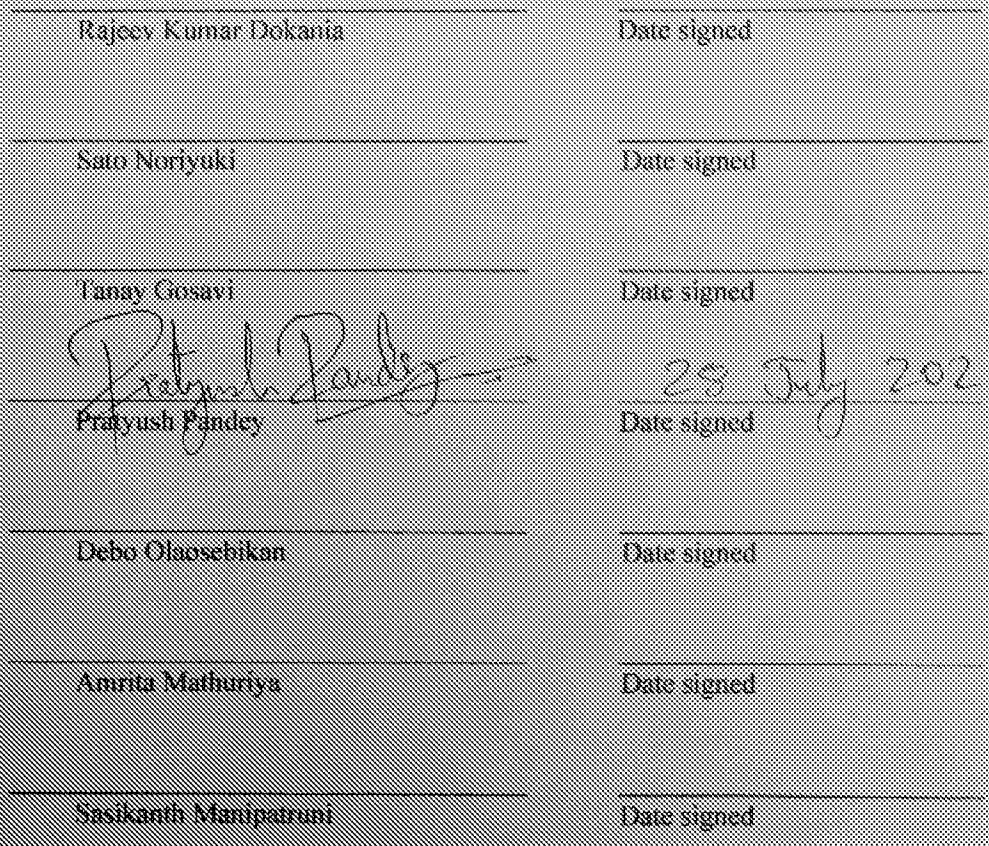 Rajeev Kumar Dokania Date signed
Sato Noriyuki Date signed
Tanay Gosavi Date signed
Pratyush Pandey 28 July 202
Pratyush Pandey Date signed
Debo Olaosebikan Date signed
Amrita Mathuriya Date signed
Sasikanth Manipatruni Date signed